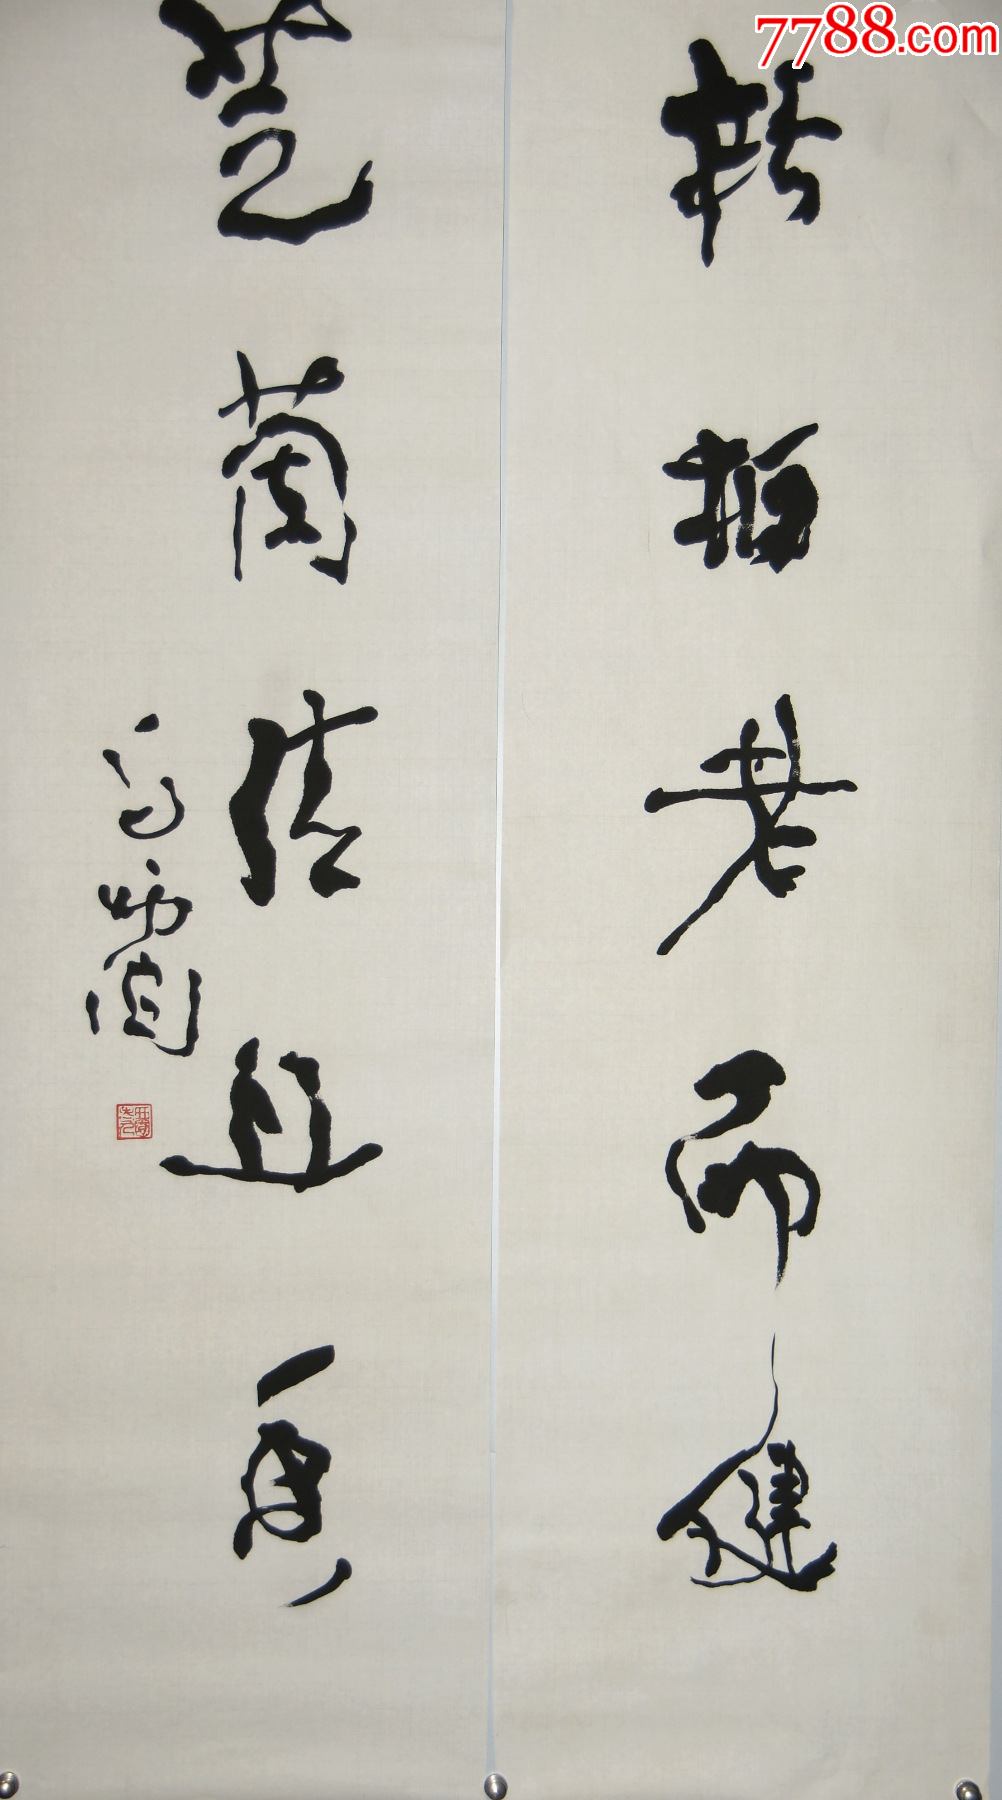 松柏老而健
芝蘭清且香
7788.com